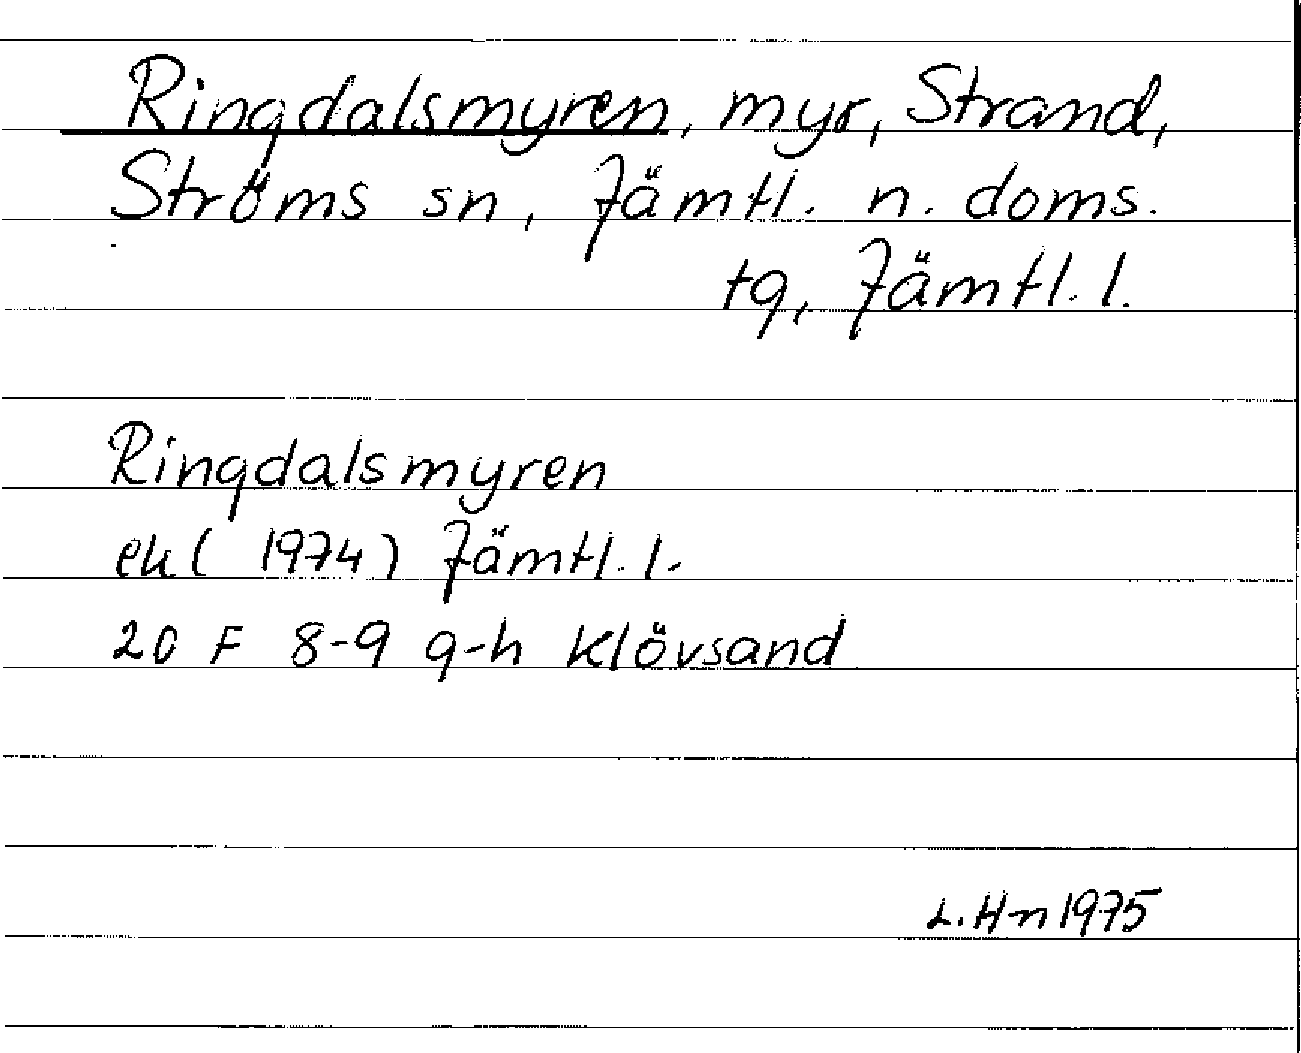 Ringdalsmyren, myr, Strand,
Ströms sn, Jämtl. n. doms.
tg, Jämtl. l.
Ringdalsmyren
ek (1974) Jämtl. l.
20 F 8-9 g-h Klövsand
L. Hn 1975